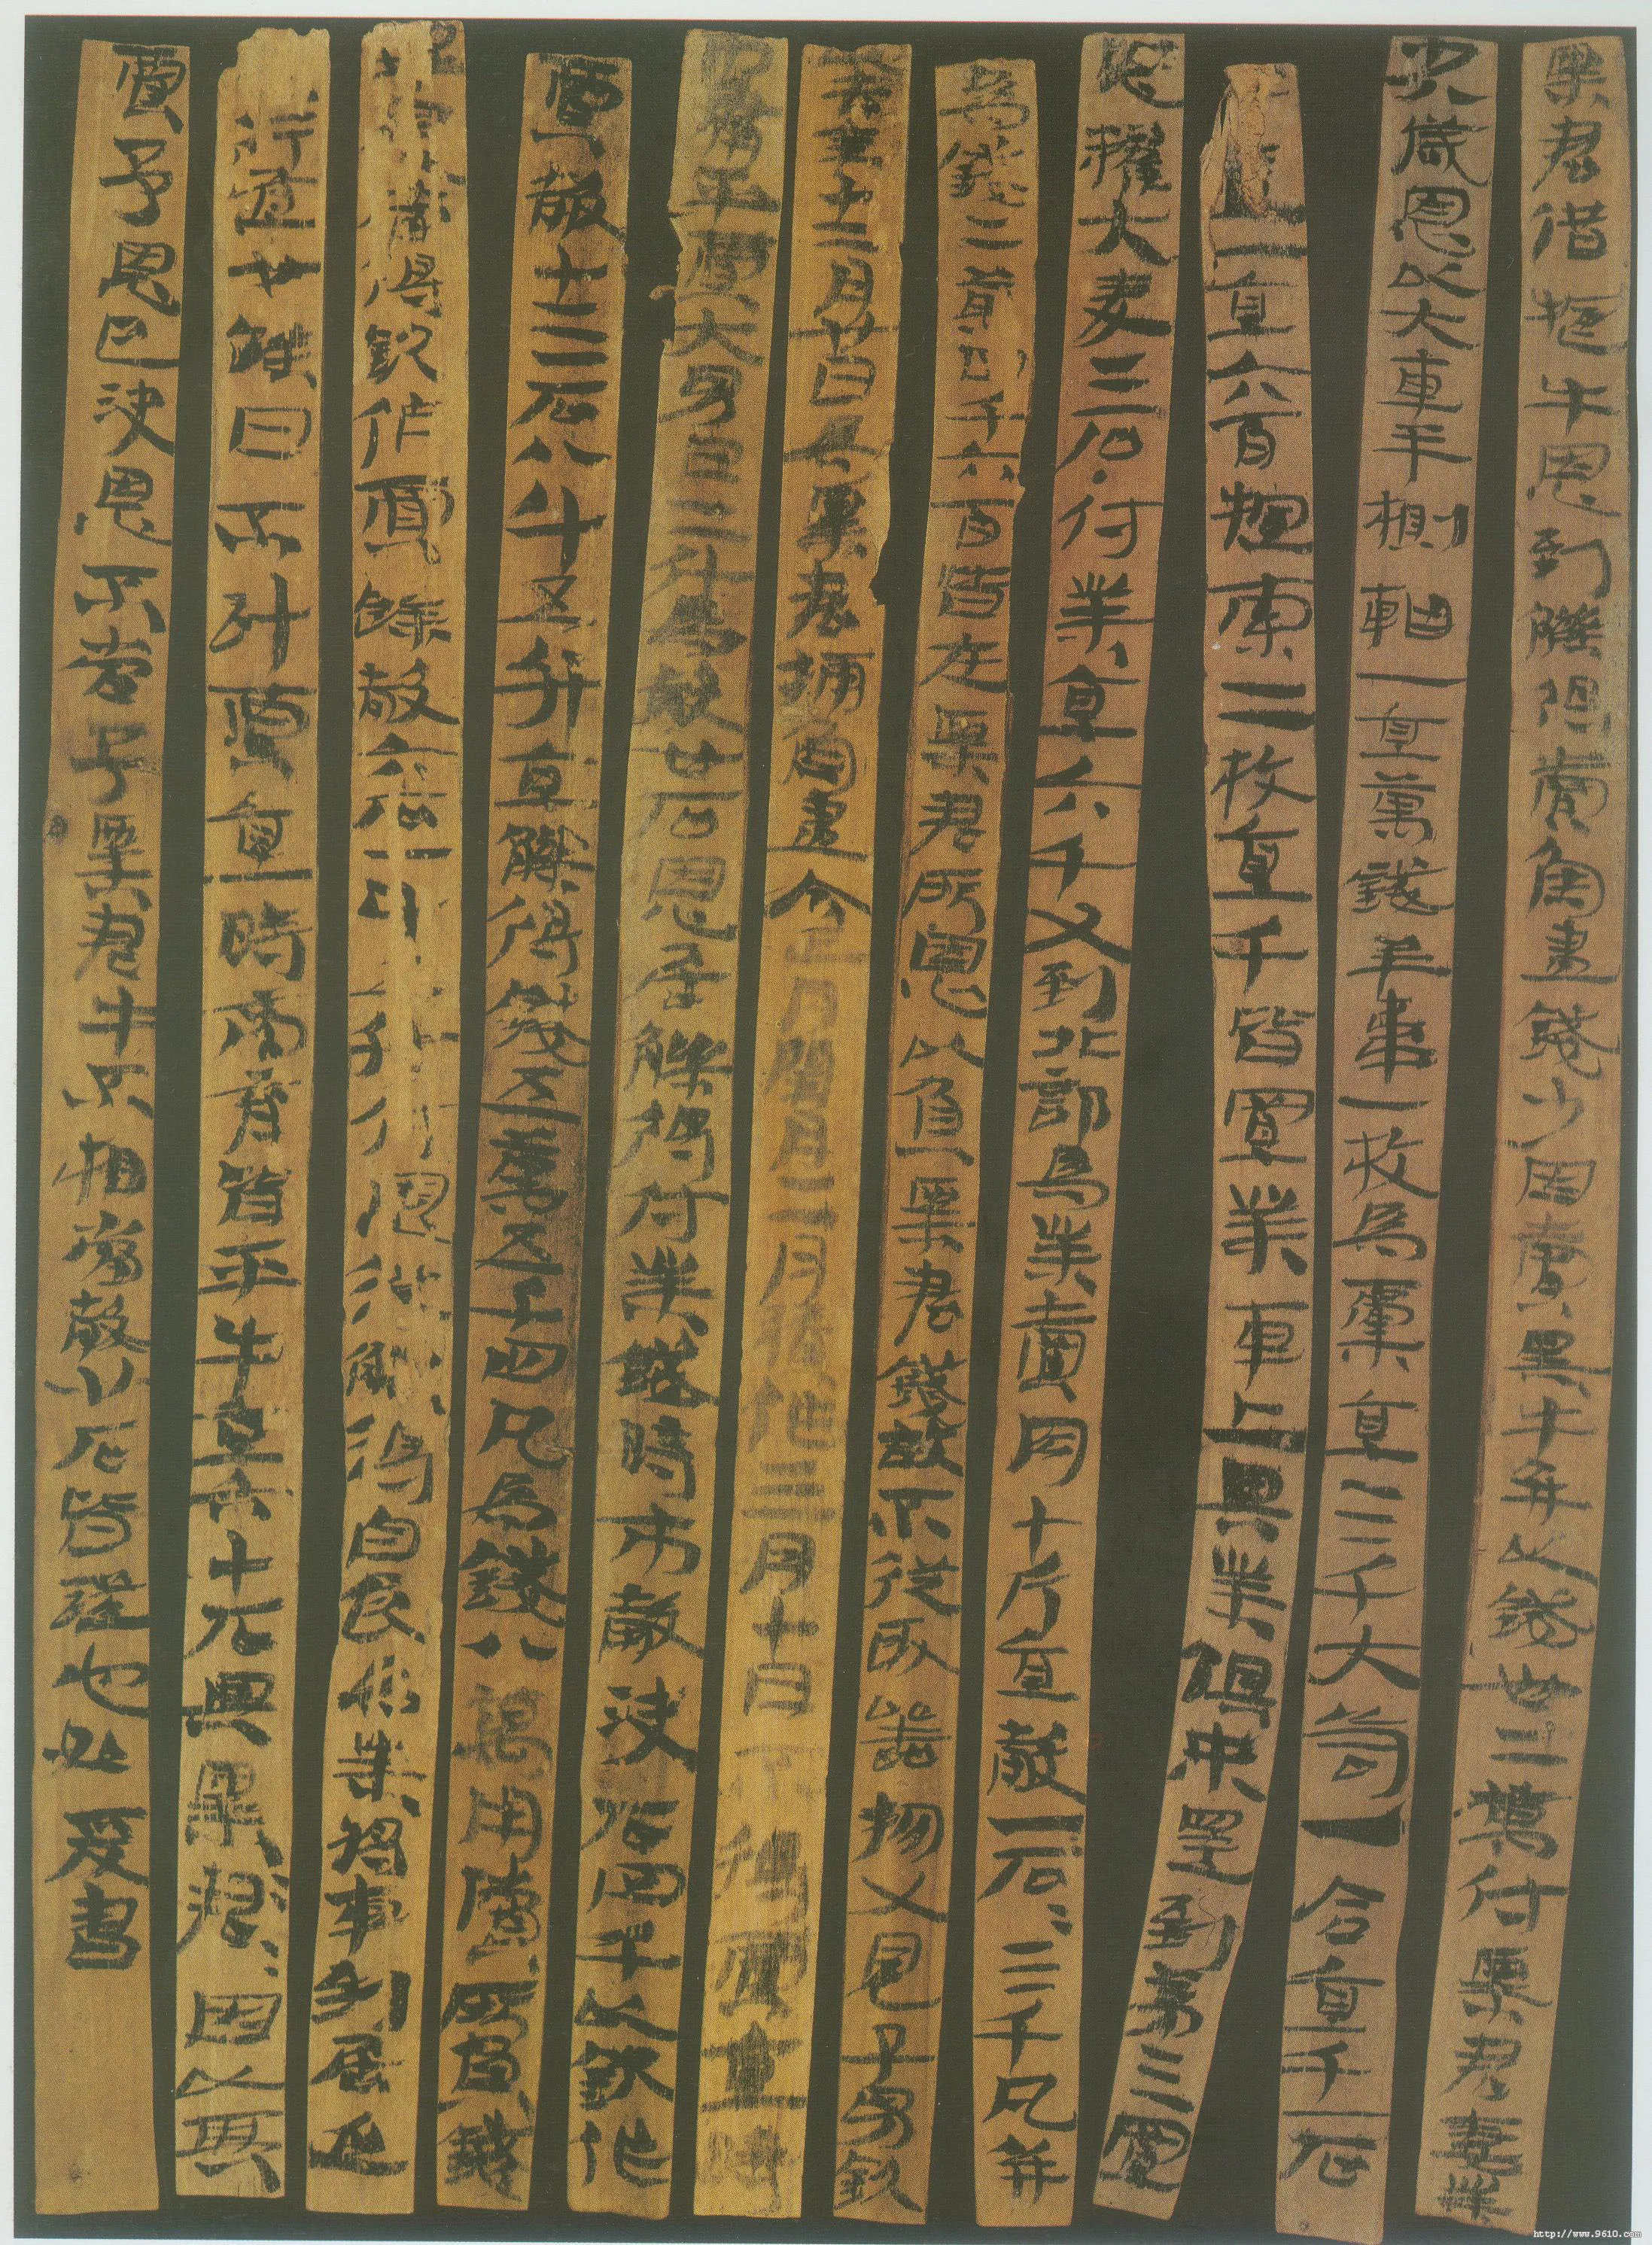 粟君借恩牛恩到觻得賣魚盡錢少因賣黑牛并以錢卅二萬付粟君妻業
少八歲恩以大車半𣝔軸一直萬錢羊韋一枚為橐直三千大笥一合直千一石
去盧一直六百𢳚索二枚直千皆置業車上與業俱來還到第三置
恩糴大麥二石付業直六千又到北部為業賣肉十斤直穀一石石三千凡并
為錢二萬四千六百皆在粟君所恩以負粟君錢故不從取器物又恩子男欽
以去年十二月廿日為粟君捕魚盡今正月閏月二月積作三月十日不得賈直時
市庸平賈大男日二斗為穀廿石恩居觻得付業錢時市穀決石四千以欽作
賈穀十三石八斗五升直觻得錢五萬五千四凡為錢八萬用償所負錢
畢恩當得欽作賈餘穀六石一斗五升付恩從觻得自食為業將車到居延
行道廿餘日不計賈直時商育皆平牛直六十石與粟君因以其
賈予恩已決恩不當予粟君牛不相當穀廿石皆證也如爰書
http://www.9610.com